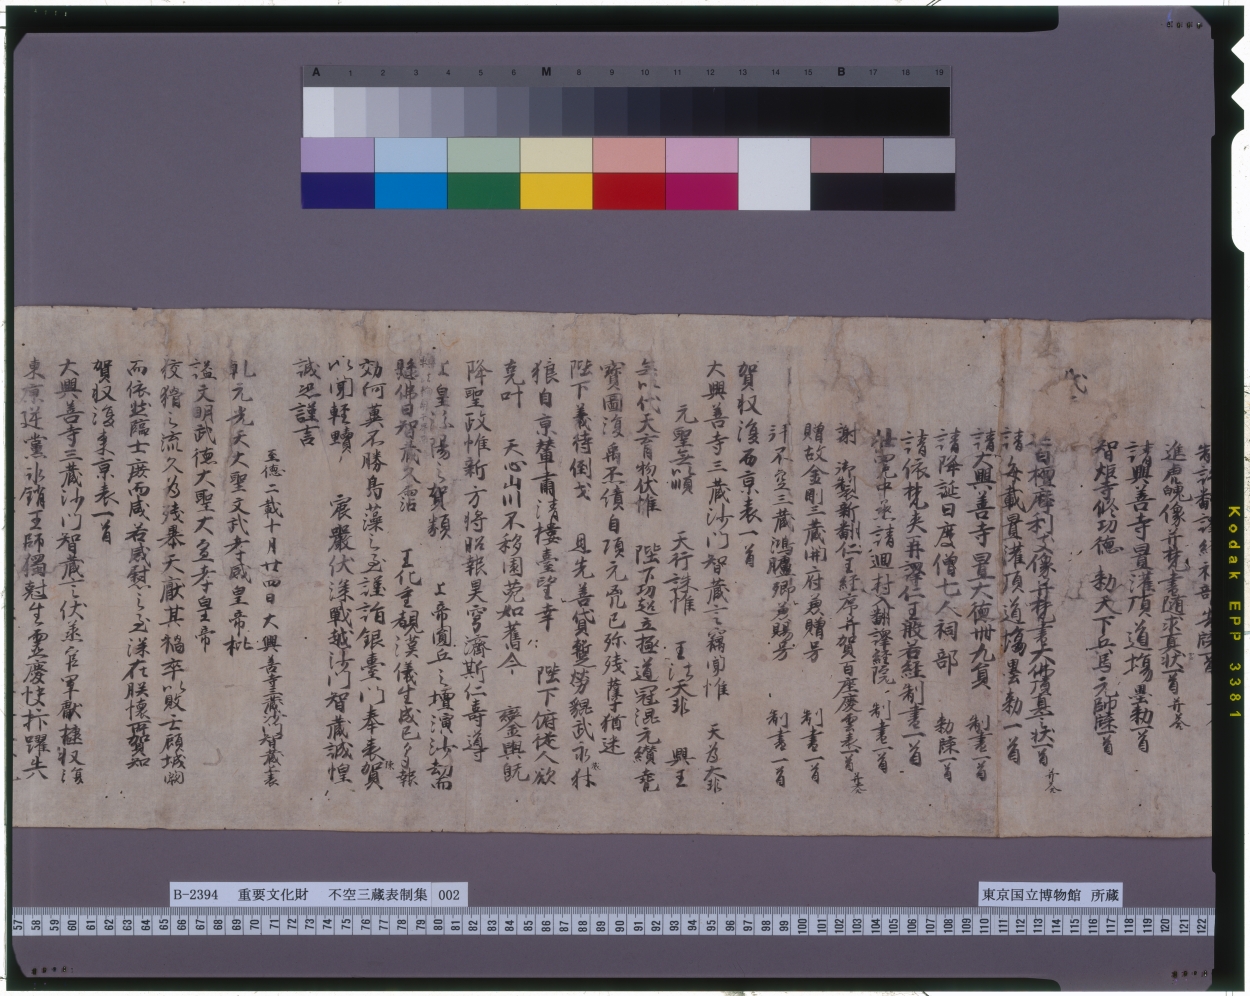 進虎魄像并梵書隨求真狀一首 并答
請興善寺置灌頂道場墨勅一首
智炬寺修功德 勅天下兵馬元帥牒一首
進白檀摩利支像并梵書大佛頂真言狀一首 并答
請每載置灌頂道場墨勅一首
請大興善寺置大德卌九員 制書一首
請降誕日度僧七人祠部 勅牒一首
請依梵夾再譯仁王般若經制書一首
謝 御製新翻仁王經序并賀百座慶雲表一首 并答
贈故金剛三藏開府及贈号 制書一首
拜不空三藏鴻臚卿及賜号 制書一首
賀収復西京表一首
大興善寺三藏沙門智藏言竊聞惟 天為大非
元聖無以順 天行誅惟 王法天非 興王
無以代天育物伏惟 陛下功超立極道冠混元纘堯
寶圖復禹丕績自頃元兇已殄殘孽猶迷
陛下義特倒戈 且先善貸蹔勞貔武永
狼自京輦肅清樓臺望幸 陛下俯從人欲
克叶 天心山川不移園苑如舊今 鑾輿既
降聖政惟新方將昭報昊穹濟斯仁壽導
上皇 汾陽之賀類 上帝圓丘之壇演沙劫
懸佛日智藏久霑 王化重覩漢儀生成已多報
効何冀不勝鳧藻之至謹詣銀臺門奉表陳賀
以聞輕黷 宸嚴伏深戰越沙門智藏誠惶
誠恐謹言
至德二載十月廿四日大興善寺三藏沙門智藏表
乹元光天大聖文武孝感皇帝批
諡文明武德大聖大宣孝皇帝
狡猾之流久為殘暴天厭其禍卒以敗亡顧城闕
而依然臨士庶而咸若感慰之至深在朕懷所賀知
賀収復東京表一首
大興善寺三藏沙門智藏言伏承官軍獻捷収復
東京逆黨氷銷王師獨尅生靈慶快抃躍失
B-2394 重要文化財 不空三蔵表制集 002
東京国立博物館 所蔵
Kodak EPP 3381
A 1 2 3 4 5 6 M 8 9 10 11 12 13 14 15 B 17 18 19
57 58 59 60 61 62 63 64 65 66 67 68 69 70 71 72 73 74 75 76 77 78 79 80 81 82 83 84 85 86 87 88 89 90 91 92 93 94 95 96 97 98 99 100 101 102 103 104 105 106 107 108 109 110 111 112 113 114 115 116 117 118 119 120 121 122